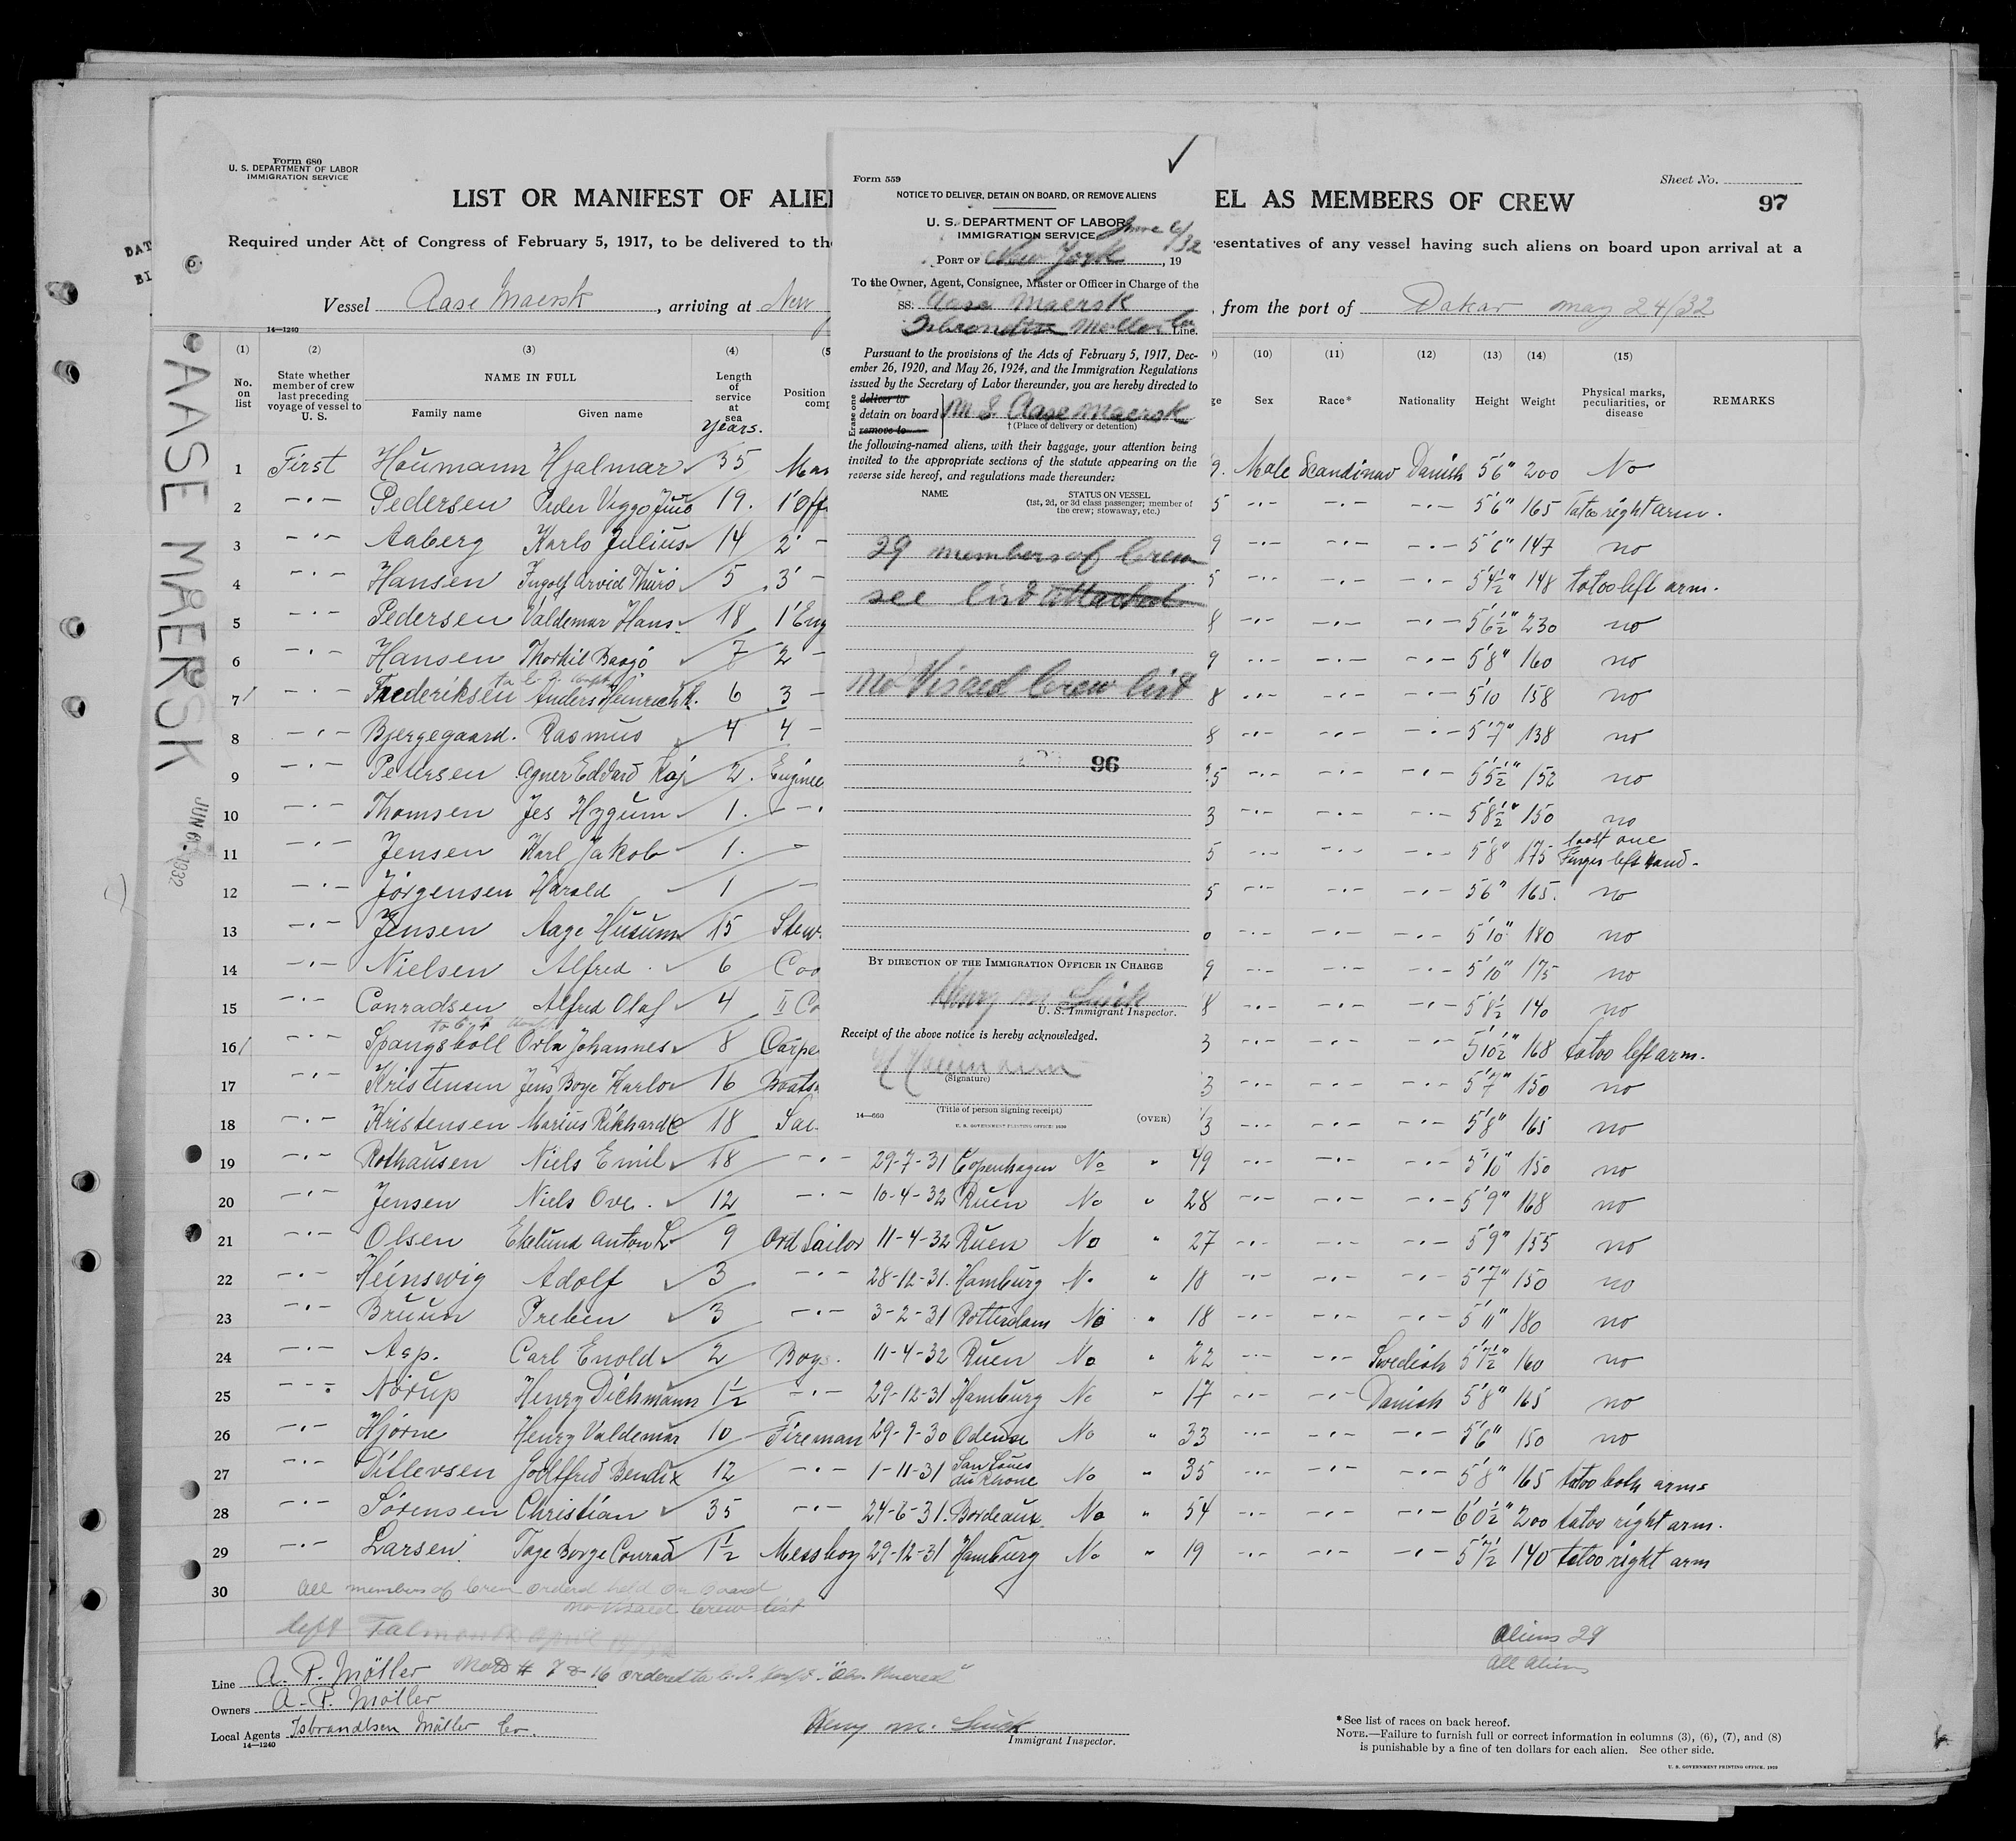 Form 680
U. S. DEPARTMENT OF LABOR
IMMIGRATION SERVICE
Sheet No.
97
LIST OR MANIFEST OF ALIE
EL AS MEMBERS OF CREW
Required under Act of Congress of February 5, 1917, to be delivered to th
resentatives of any vessel having such aliens on board upon arrival at a
Vessel Aase Maersk, arriving at New
, from the port of Dakar may 24/32
14—1240
AASE MAERSK
JUN 6 - 1932
DAT
BI
Form 559
NOTICE TO DELIVER, DETAIN ON BOARD, OR REMOVE ALIENS
U. S. DEPARTMENT OF LABOR
IMMIGRATION SERVICE
June 6/32
PORT OF New York, 19
To the Owner, Agent, Consignee, Master or Officer in Charge of the
SS. Aase Maersk
Isbrandtsen Moller Co Line.
Pursuant to the provisions of the Acts of February 5, 1917, Dec-
ember 26, 1920, and May 26, 1924, and the Immigration Regulations
issued by the Secretary of Labor thereunder, you are hereby directed to
Erase one
deliver to
detain on board
remove to
M. S. Aase Maersk
† (Place of delivery or detention)
the following-named aliens, with their baggage, your attention being
invited to the appropriate sections of the statute appearing on the
reverse side hereof, and regulations made thereunder:
NAME
STATUS ON VESSEL
(1st, 2d, or 3d class passenger; member of
the crew; stowaway, etc.)
29 members of Crew
see list attached
no Visaed Crew list
96
BY DIRECTION OF THE IMMIGRATION OFFICER IN CHARGE
Henry M. Luick
U. S. Immigrant Inspector.
Receipt of the above notice is hereby acknowledged.
H Houmann
(Signature)
(Title of person signing receipt)
14—660
(OVER)
U. S. GOVERNMENT PRINTING OFFICE: 1930
(1) (2) (3) (4) (5 (10) (11) (12) (13) (14) (15)
No. on list
State whether member of crew last preceding voyage of vessel to U. S.
NAME IN FULL
Family name
Given name
Length of service at sea
years.
Position
comp
Sex
Race*
Nationality
Height
Weight
Physical marks, peculiarities, or disease
REMARKS
1 First Houmann Hjalmar 35 Mas 9. Male Scandinav Danish 5'6" 200 No
2 -·- Pedersen Peder Viggo Juul 19. 1'Off 5 -·- -·- -·- 5'6" 165 Tatoo right arm.
3 -·- Aaberg Karlo Julius 14 2' - 9 -·- -·- -·- 5'6" 147 no
4 -·- Hansen Ingolf Arvid Thuro 5 3' - 5 -·- -·- -·- 5'4½" 148 tatoo left arm.
5 -·- Pedersen Valdemar Hans 18 1'Eng 8 -·- -·- -·- 5'6½" 230 no
6 -·- Hansen Thorkil Baagó 7 2' - 9 -·- -·- -·- 5'8" 160 no
7 -·- Frederiksen Anders Heinrich K. 6 3 - 8 -·- -·- -·- 5'10 158 no
8 -·- Bjergegaard. Rasmus 4 4 - 8 -·- -·- -·- 5'7" 138 no
9 -·- Petersen Agner Edvard Kaj 2. Enginee 25 -·- -·- -·- 5'5½" 152 no
10 -·- Thomsen Jes Hygum 1. -· 3 -·- -·- -·- 5'8½" 150 no
11 -·- Jensen Karl Jakob 1. - 5 -·- -·- -·- 5'8" 175 lost one Finger left hand.
12 -·- Jörgensen Harald 1 - 5 -·- -·- -·- 5'6" 165. no
13 -·- Jensen Aage Husum 15 Stew. 0 -·- -·- -·- 5'10" 180 no
14 -·- Nielsen Alfred 6 Coo 9 -·- -·- -·- 5'10" 175 no
15 -·- Conradsen Alfred Olaf 4 II Co 8 -·- -·- -·- 5'8½ 140 no
16 -·- Spangsboll Orla Johannes 8 Carpe 3 -·- -·- -·- 5'10½" 168 tatoo left arm.
17 -·- Kristensen Jens Boye Karlo 16 Boats 3 -·- -·- -·- 5'7" 150 no
18 -·- Kristensen Marius Rikhardt 18 Sai 3 -·- -·- -·- 5'8" 165 no
19 -·- Rothausen Niels Emil 18 -·- 29-7-31 Copenhagen No " 49 -·- -·- -·- 5'10" 150 no
20 -·- Jensen Niels Ove. 12 -·- 10-4-32 Ruen No " 28 -·- -·- -·- 5'9" 168 no
21 -·- Olsen Ekelund Anton L 9 Ord Sailor 11-4-32 Ruen No " 27 -·- -·- -·- 5'9" 155 no
22 -·- Heinswig Adolf 3 -·- 28-12-31. Hamburg No " 18 -·- -·- -·- 5'7" 150 no
23 -·- Bruun Preben 3 -·- 3-2-31 Rotterdam No " 18 -·- -·- -·- 5'11" 180 no
24 -·- Asp. Carl Enold 2 Boys. 11-4-32 Ruen No " 22 -·- -·- Swedish 5'7½" 160 no
25 -·- Nörup Henry Dichmann 1½ -·- 29-12-31 Hamburg No " 17 -·- -·- Danish 5'8" 165 no
26 -·- Hjorne Henry Valdemar 10 Fireman 29-9-30 Odense No " 33 -·- -·- -·- 5'6" 150 no
27 -·- Ditlevsen Gottfred Bendix 12 -·- 1-11-31 San Louis du Rhone No " 35 -·- -·- -·- 5'8" 165 tatoo both arms
28 -·- Sörensen Christian 35 -·- 24-6-31. Bordeaux. No " 54 -·- -·- -·- 6'0½" 200 tatoo right arm.
29 -·- Larsen Tage Borge Conrad 1½ Messboy 29-12-31 Hamburg No " 19 -·- -·- -·- 5'7½ 140 tatoo right arm
30 All members of Crew ordered held on board
no Visaed Crew list
left Falmouth April
Aliens 29
All Aliens
Line A. P. Möller
# 7 & 16 ordered to
Owners A. P. Möller
Local Agents Isbrandtsen Möller Co.
14—1240
Henry M. Luick
Immigrant Inspector.
*See list of races on back hereof.
NOTE.—Failure to furnish full or correct information in columns (3), (6), (7), and (8)
is punishable by a fine of ten dollars for each alien. See other side.
U. S. GOVERNMENT PRINTING OFFICE. 1929